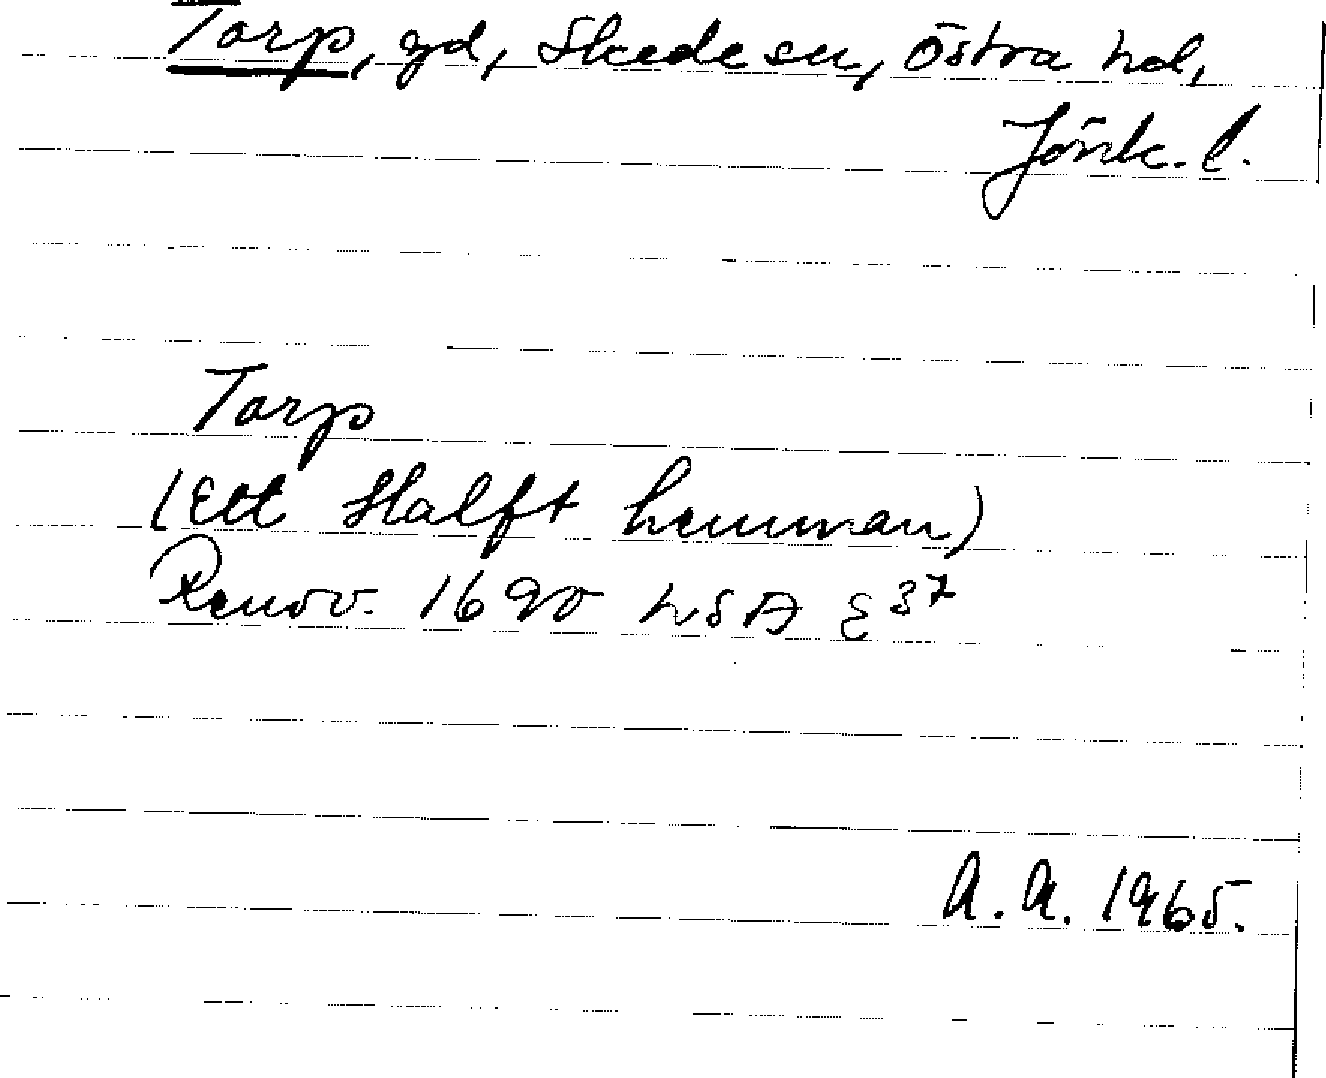 Torp, gd, Skede sn, Östra hd,
Jönk. l.
Torp
(Ett Halft hemman)
Renov. 1690 LSA E 37
A.A. 1965.